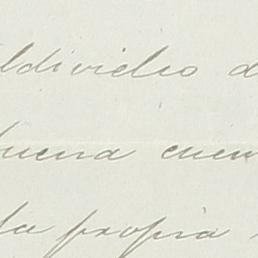 ldivielso d
buena cuen
la propia